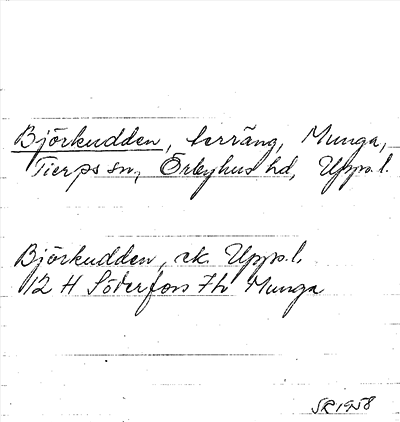 Björkudden, terräng, Munga,
Tierps sn, Örbyhus hd, Uppl.
Björkudden, ek. Uppl.
12 H Söderfors 7h Munga
SR 1958